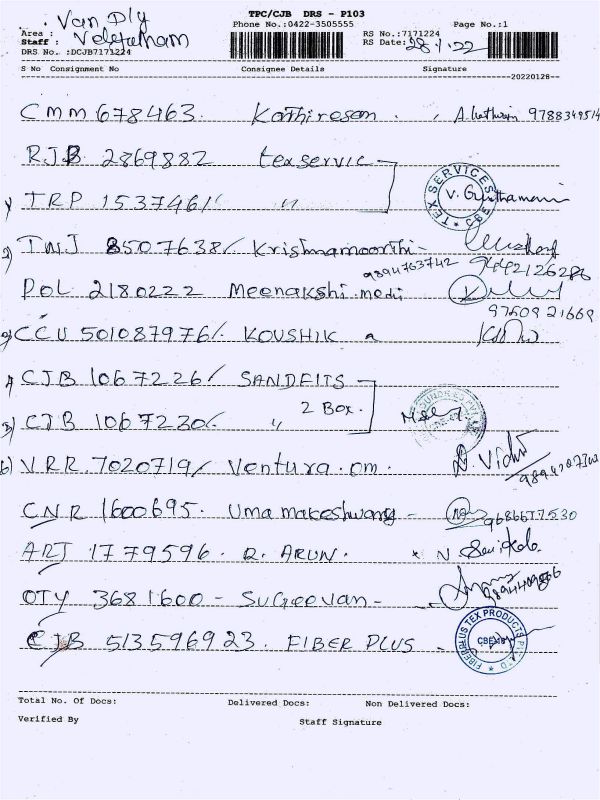 TPC/CJB DRS - P103
Van Dly
Phone No.:0422-3505555 Page No.:1
Area :
Staff :
RS No.:7171224
RS Date: 28.1.22
DRS No. :DCJB7171224
S No Consignment No Consignee Details Signature
20220128
CMM 678463. Kathiresan 9788349514
RJB 2869882 texservic
1) TRP 1537461/. "
TEX SERVICES CBE
2) TNJ 8507638/. Krishnamoorthi- 9442126286
9894763742
POL 2180222 Meenakshi medi
9750921669
3) CCU 501087976/. KOUSHIK
4) CJB 1067226/ SANDFITS
2 Box.
5) CJB 1067230/. "
6) VRR 7020719/ Ventura.om. Vidu
CNR 1600695. Uma makeshwang - 9686677530
ARJ 1779596. R. ARUN.
OTY 3681600 - SuGeevan-
CJB 513596923. FIBER PLUS
FIBERPLUS TEX PRODUCTS PVT LTD CBE
Total No. Of Docs: Delivered Docs: Non Delivered Docs:
Verified By Staff Signature